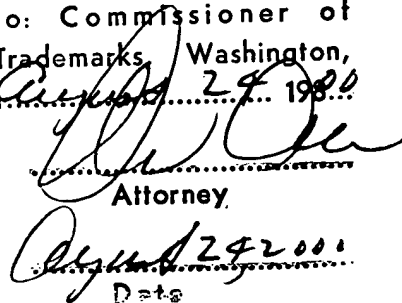 o: Commissioner of
Trademarks, Washington,
August 24 1900
Attorney
August 24, 2000
Date